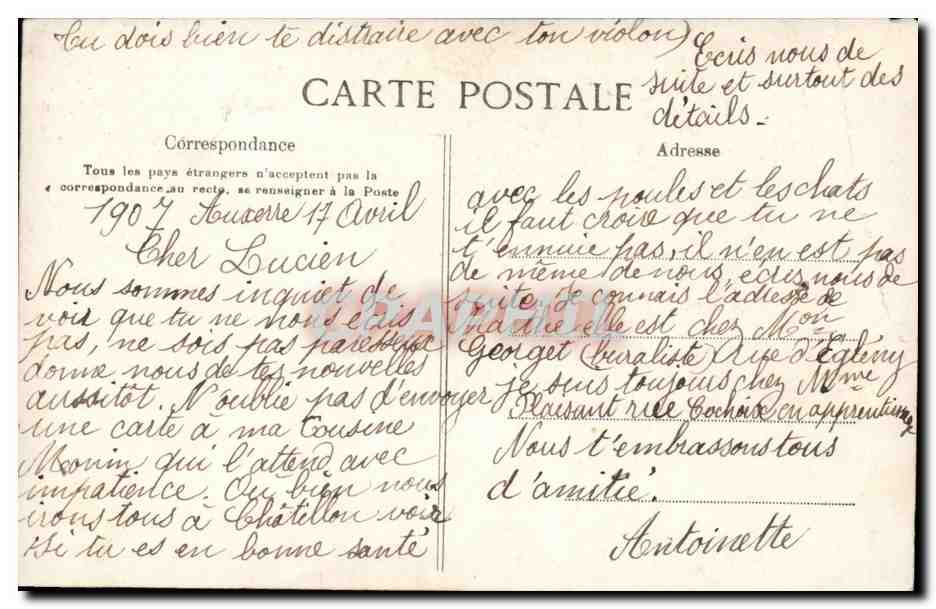 Tu dois bien te distraire avec ton violon)
Ecris nous de
suite et surtout des
détails.
CARTE POSTALE
Correspondance
Tous les pays étrangers n'acceptent pas la
correspondance au recto, se renseigner à la Poste
1907 Auxerre 17 Avril
Cher Lucien
Nous sommes inquiet de
voir que tu ne nous écris
pas, ne sois pas paresseux
donne nous de tes nouvelles
aussitôt. N'oublie pas d'envoyer
une carte à ma Cousine
Monin qui l'attend avec
impatience. Ou bien nous
irons tous à Châtillon voir
si tu es en bonne santé
Adresse
avec les poules et les chats
il faut croire que tu ne
t'ennuie pas, il n'en est pas
de même de nous, écris nous de
suite. Je connais l'adresse de
Marthe elle est chez Mon
Georget (buraliste) rue d'Egleny
je suis toujours chez Mme
Plaisant rue Cochois en apprentissage
Nous t'embrassons tous
d'amitié.
Antoinette